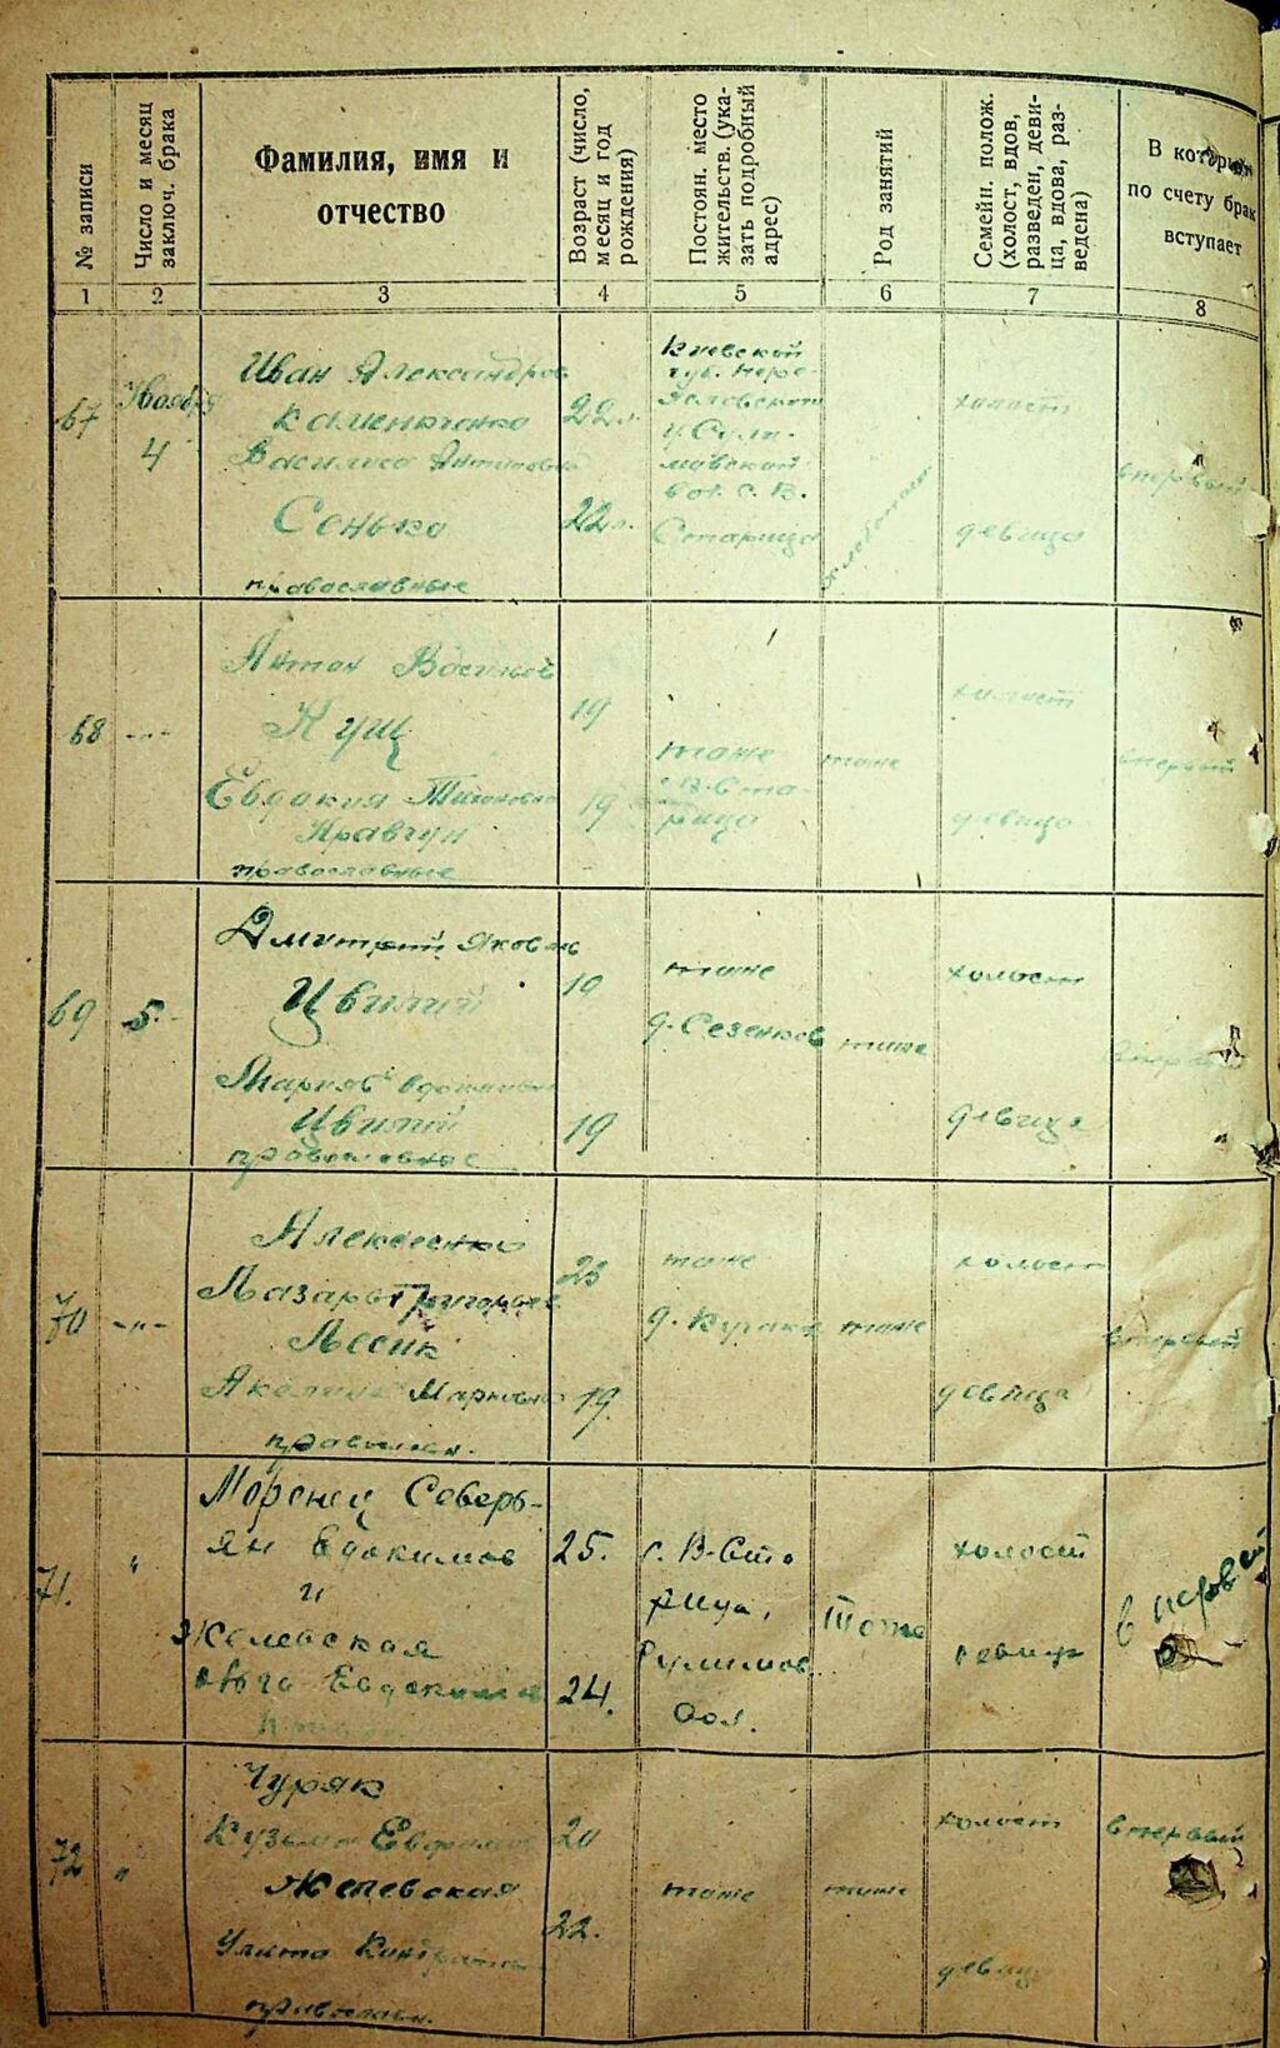 № записи
Число и месяц
заключ. брака
Фамилия, имя и
отчество
Возраст (число,
месяц и год
рождения)
Постоян. место
жительств. (ука-
зать подробный
адрес)
Род занятий
Семейн. полож.
(холост, вдов,
разведен, деви-
ца, вдова, раз-
ведена)
В котор
по счету брак
вступает
1
2
3
4
5
6
7
8
67
Ноября
4
Иван Александров
Каменьченко
Василиса Антиповна
Сенько
православные
22 л.
22 л.
Киевской
губ. Пере-
яславского
у. Сули-
мовской
вол. с. В.
Старица
хлебопаш
холост
девица
впервый
68
-"-
Антон Васильев
Кущ
Евдокия Тихоновна
Кравчун
православные
19
19
тоже
с. В. Ста-
рица
тоже
холост
девица
впервый
69
5.-
Дмитрий Яковлев
Цвилий
Мария
Цвилий
православные
19
19
тоже
д. Сезенков
тоже
холост
девица
70
-"-
Алексеенко
Лазарь Григорьев
Лесик
Акилина Марковна
православн.
23
19.
тоже
д.
тоже
холост
девица
впервый
71.
"
Моренец Северь-
ян Евдокимов
и
Желевская
Евдокимов
25.
24.
с. В-Ста
рица,
Сулимов.
вол.
Тоже
холост
девица
в первый
72
"
Чуряк
Кузьма
Желевская
Улита Кондратов
православн.
20
22.
тоже
тоже
холост
девица
впервый